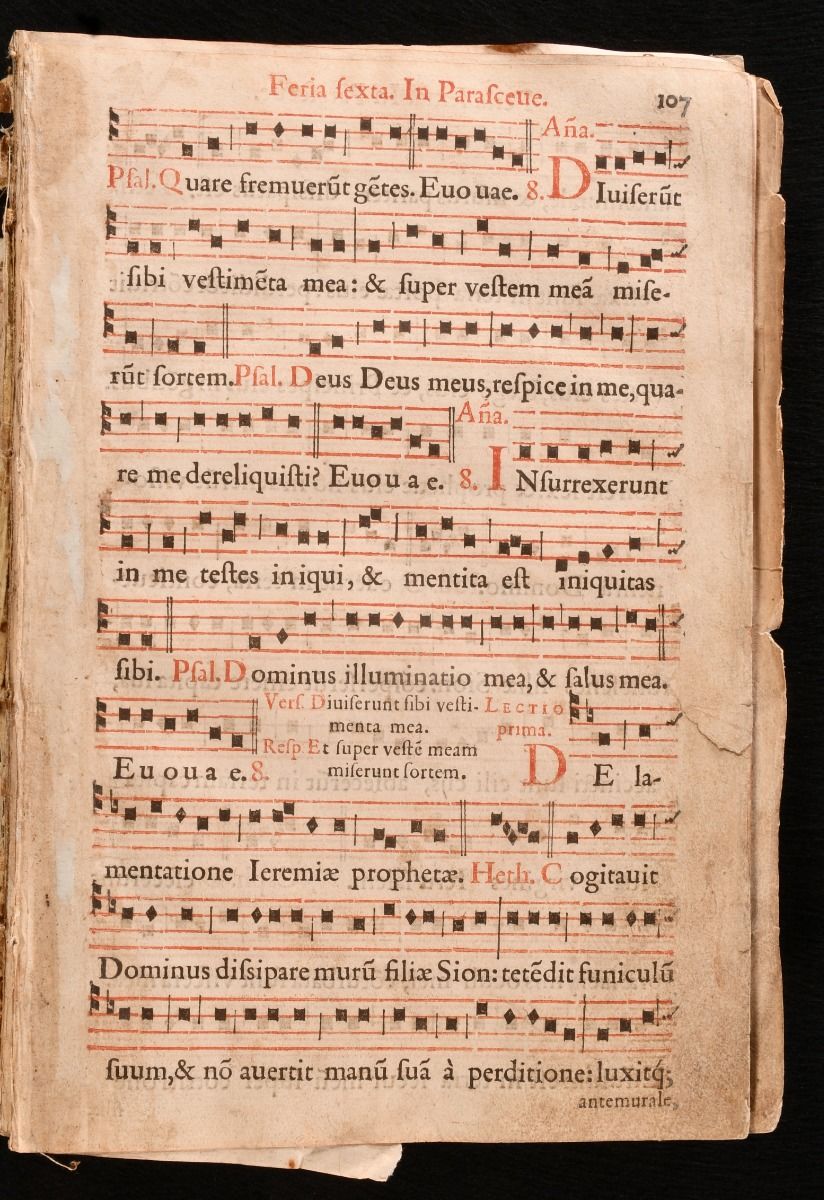 Feria ſexta. In Paraſceue.
107
Pſal. Quare fremuerūt gētes. Euouae. 8. Aña. DIuiſerūt
ſibi veſtimēta mea: & ſuper veſtem meā miſe-
rūt ſortem. Pſal. Deus Deus meus, reſpice in me, qua-
re me dereliquiſti? Euouae. 8. Aña. INſurrexerunt
in me teſtes iniqui, & mentita eſt iniquitas
ſibi. Pſal. Dominus illuminatio mea, & ſalus mea.
Euouae. 8.
Verſ. Diuiſerunt ſibi veſti-
menta mea.
Reſp Et ſuper veſtē meam
miſerunt ſortem.
LECTIO
prima.
DE la-
mentatione Ieremiæ prophetæ. Heth. Cogitauit
Dominus diſsipare murū filiæ Sion: tetēdit funiculū
ſuum, & nō auertit manū ſuā à perditione: luxitq́;
antemurale,